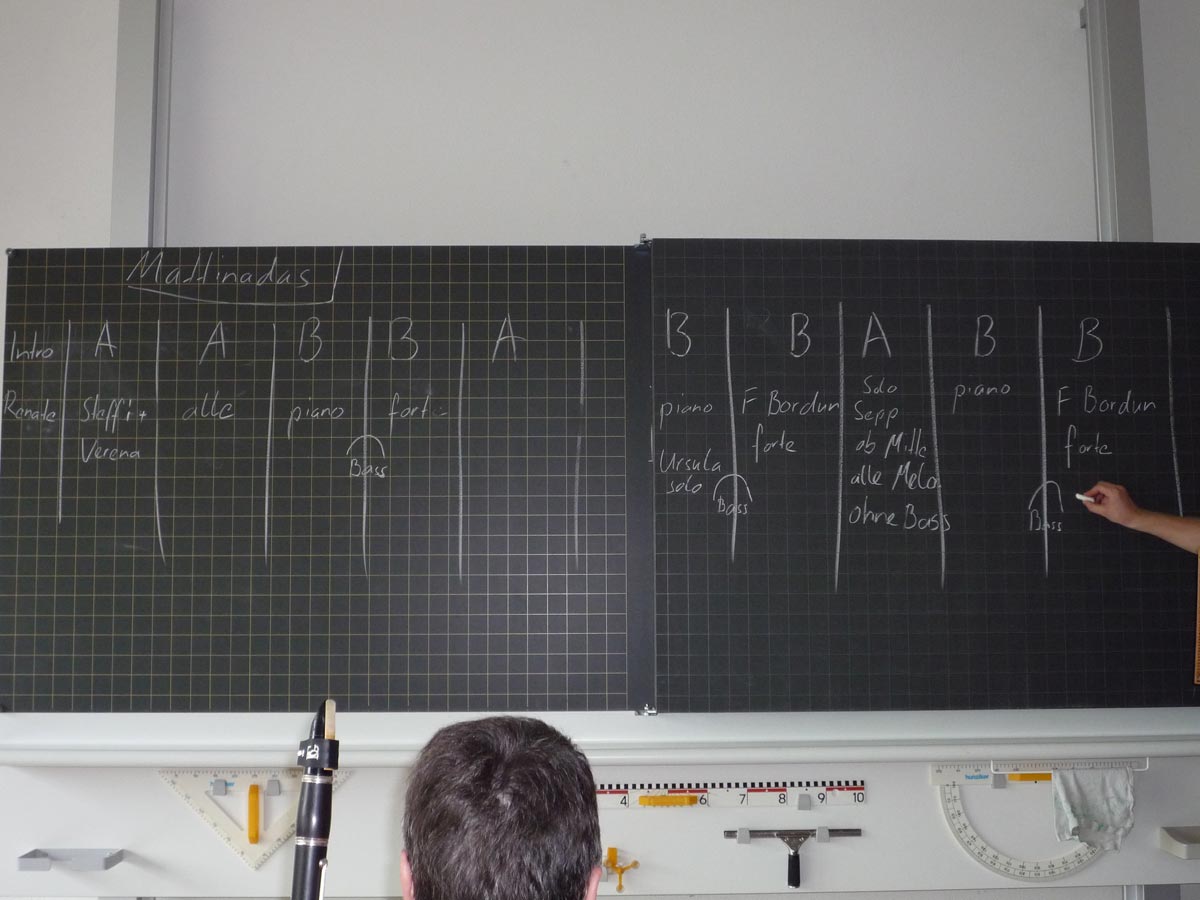 Mattinadas
Intro A A B B A
Renate Steffi + alle piano forte
Verena
Bass
B B A B B
piano F Bordun Solo piano F Bordun
forte Sepp forte
Ursula ab Mitte
solo alle Melo.
Bass ohne Bass Bass
4 6 7 8 9 10